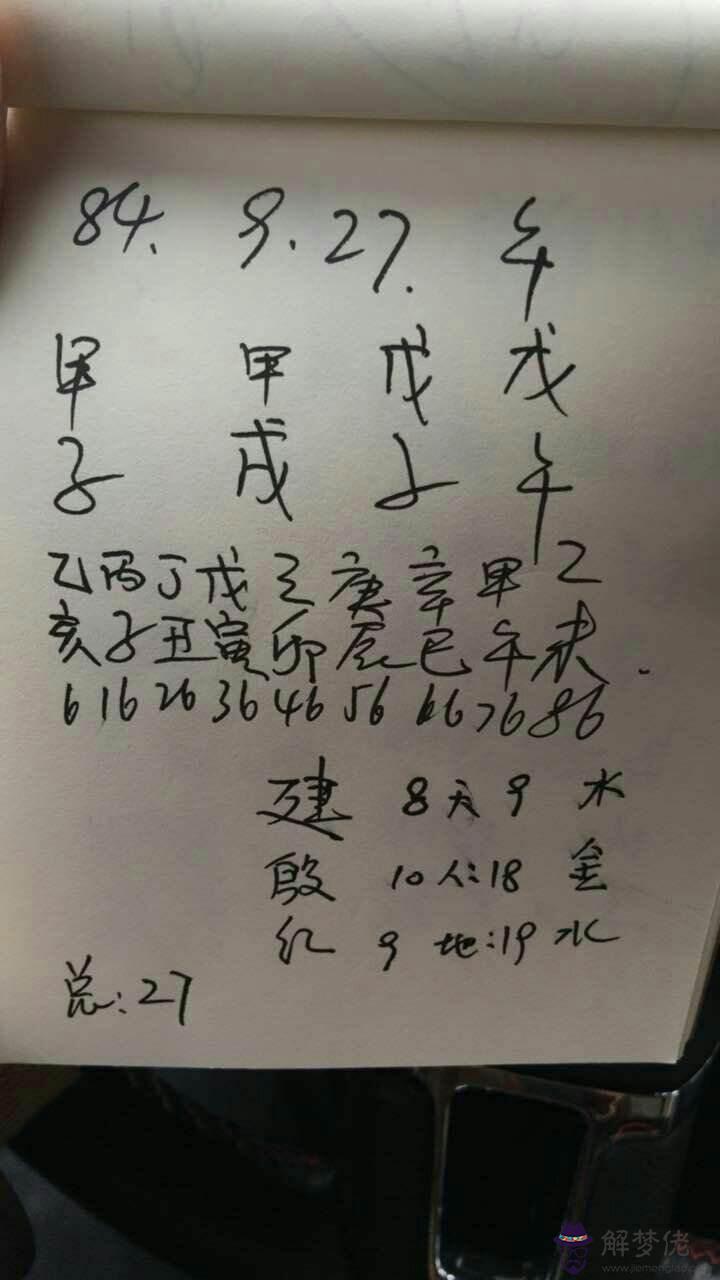 84. 9.27. 午
甲 甲 戊 戊
子 戌 子 午
乙丙丁戊己庚辛甲乙
亥子丑寅卯辰巳午未.
6 16 26 36 46 56 66 76 86
建 8 天 9 水
殷 10 人:18 金
红 9 地:19 水
总:27
解梦佬
www.jiemenglao.com